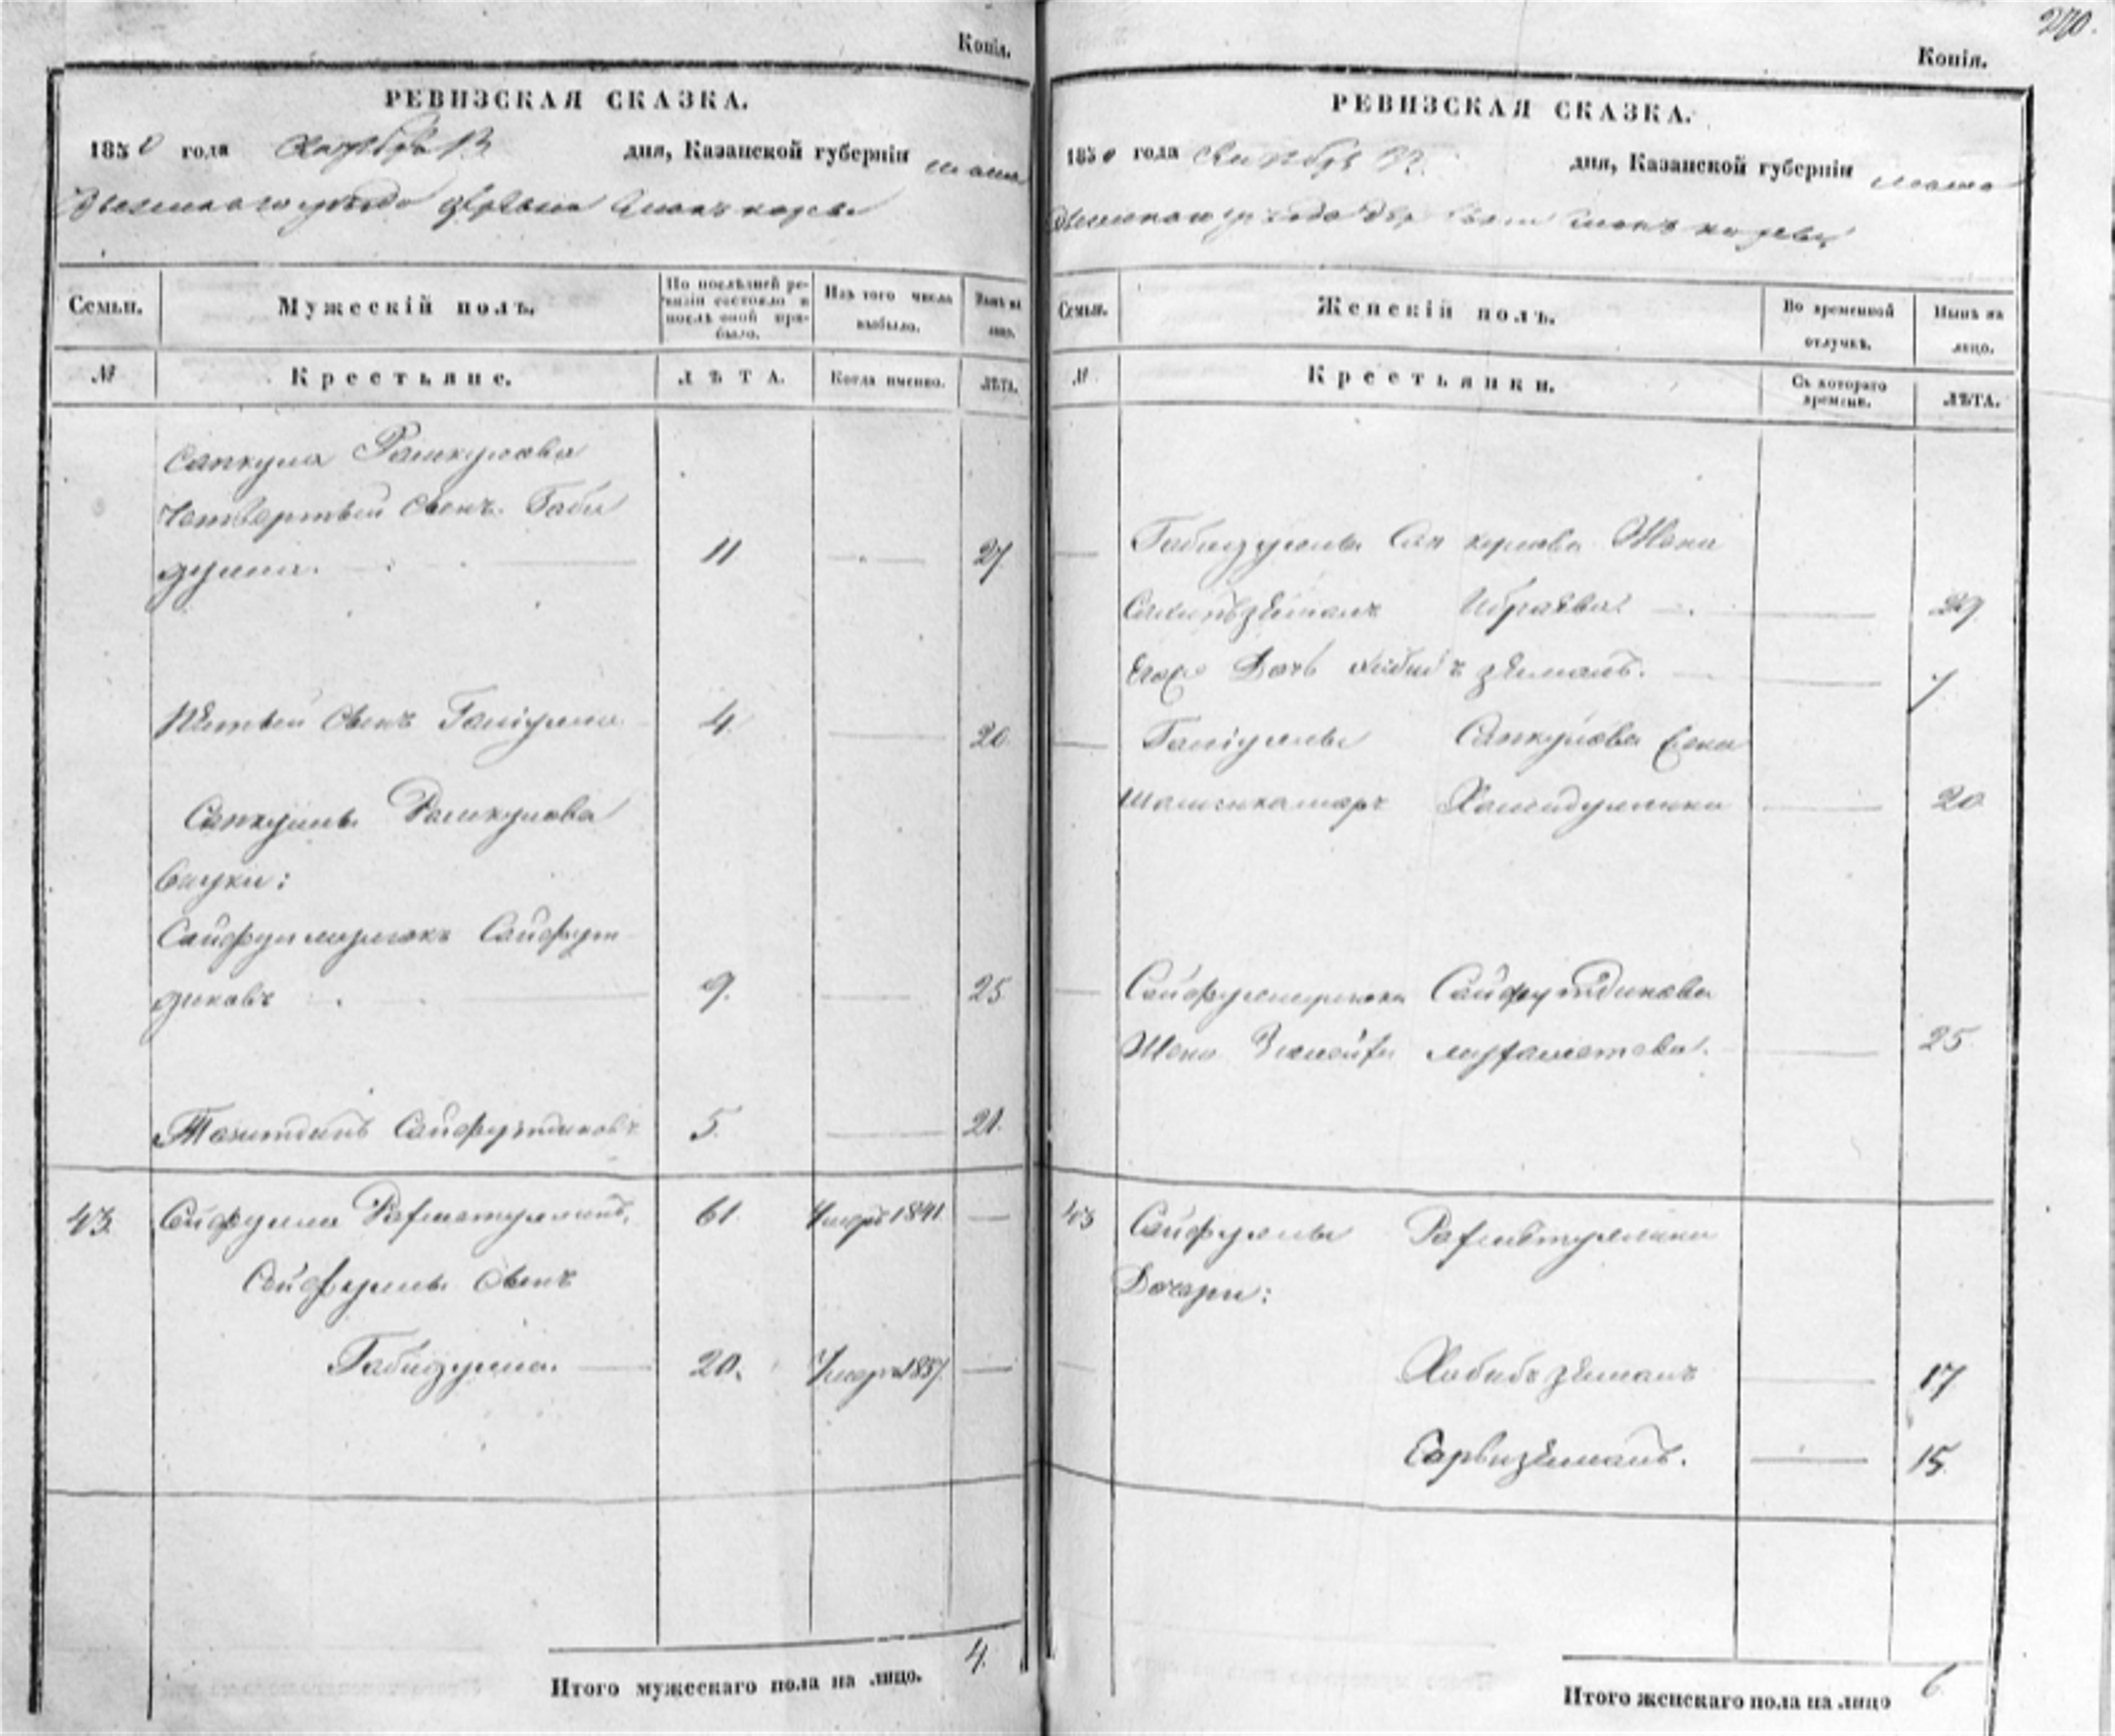 Копія.
РЕВИЗСКАЯ СКАЗКА.
1850 года Октября 13 дня, Казанской губерніи мама
дышскаго уѣзда деревни
Семьи.
Мужескій полъ.
По послѣдней ре-
визіи состояло и
послѣ оной при-
было.
Изъ того числа
выбыло.
Нынѣ на
лицо.
№
Крестьяне.
ЛѢТА.
Когда именно.
ЛѢТА.
Сапкула Рамкулова
Четвертый сынъ Габи
дулла. 11 27
Пятый сынъ Ганіулла 4 20
Сапкулы Рамкулова
внуки:
Сайфулмулюкъ Сайфут
диновъ 9. 25
Тазитдинъ Сайфутдиновъ 5. 21.
43. Сайфулла Рафматуллинъ, 61. 1841
Сайфуллы сынъ
Габидулла. 20. 1837
Итого мужескаго пола на лицо. 4.
270.
Копія.
РЕВИЗСКАЯ СКАЗКА.
1850 года Октября дня, Казанской губерніи мама
дышскаго уѣзда деревни
Семьи.
Женскій полъ.
Во временной
отлучкѣ.
Нынѣ на
лицо.
№
Крестьянки.
Съ котораго
времени.
ЛѢТА.
Габидуллы Сапкулова Жена
Ибраева. 29
Его Дочь зяманъ. 7
Ганіуллы Сапкулова Жена
Шамсикамаръ Хамидуллина 20
Сайфулмулюка Сайфутдинова
Жена 25
43 Сайфуллы Рафматуллина
Дочери:
Хабибъ зяманъ 17
Сарвизяманъ. 15
Итого женскаго пола на лицо 6